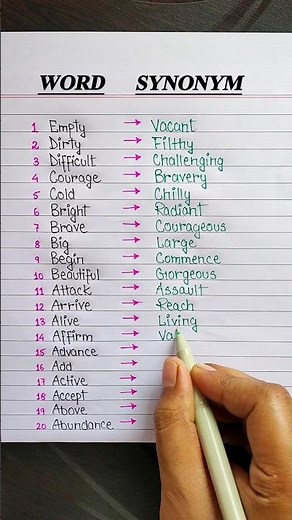 WORD SYNONYM
1 Empty → Vacant
2 Dirty → Filthy
3 Difficult → Challenging
4 Courage → Bravery
5 Cold → Chilly
6 Bright → Radiant
7 Brave → Courageous
8 Big → Large
9 Begin → Commence
10 Beautiful → Gorgeous
11 Attack → Assault
12 Arrive → Reach
13 Alive → Living
14 Affirm → Val
15 Advance →
16 Add →
17 Active →
18 Accept →
19 Above →
20 Abundance →